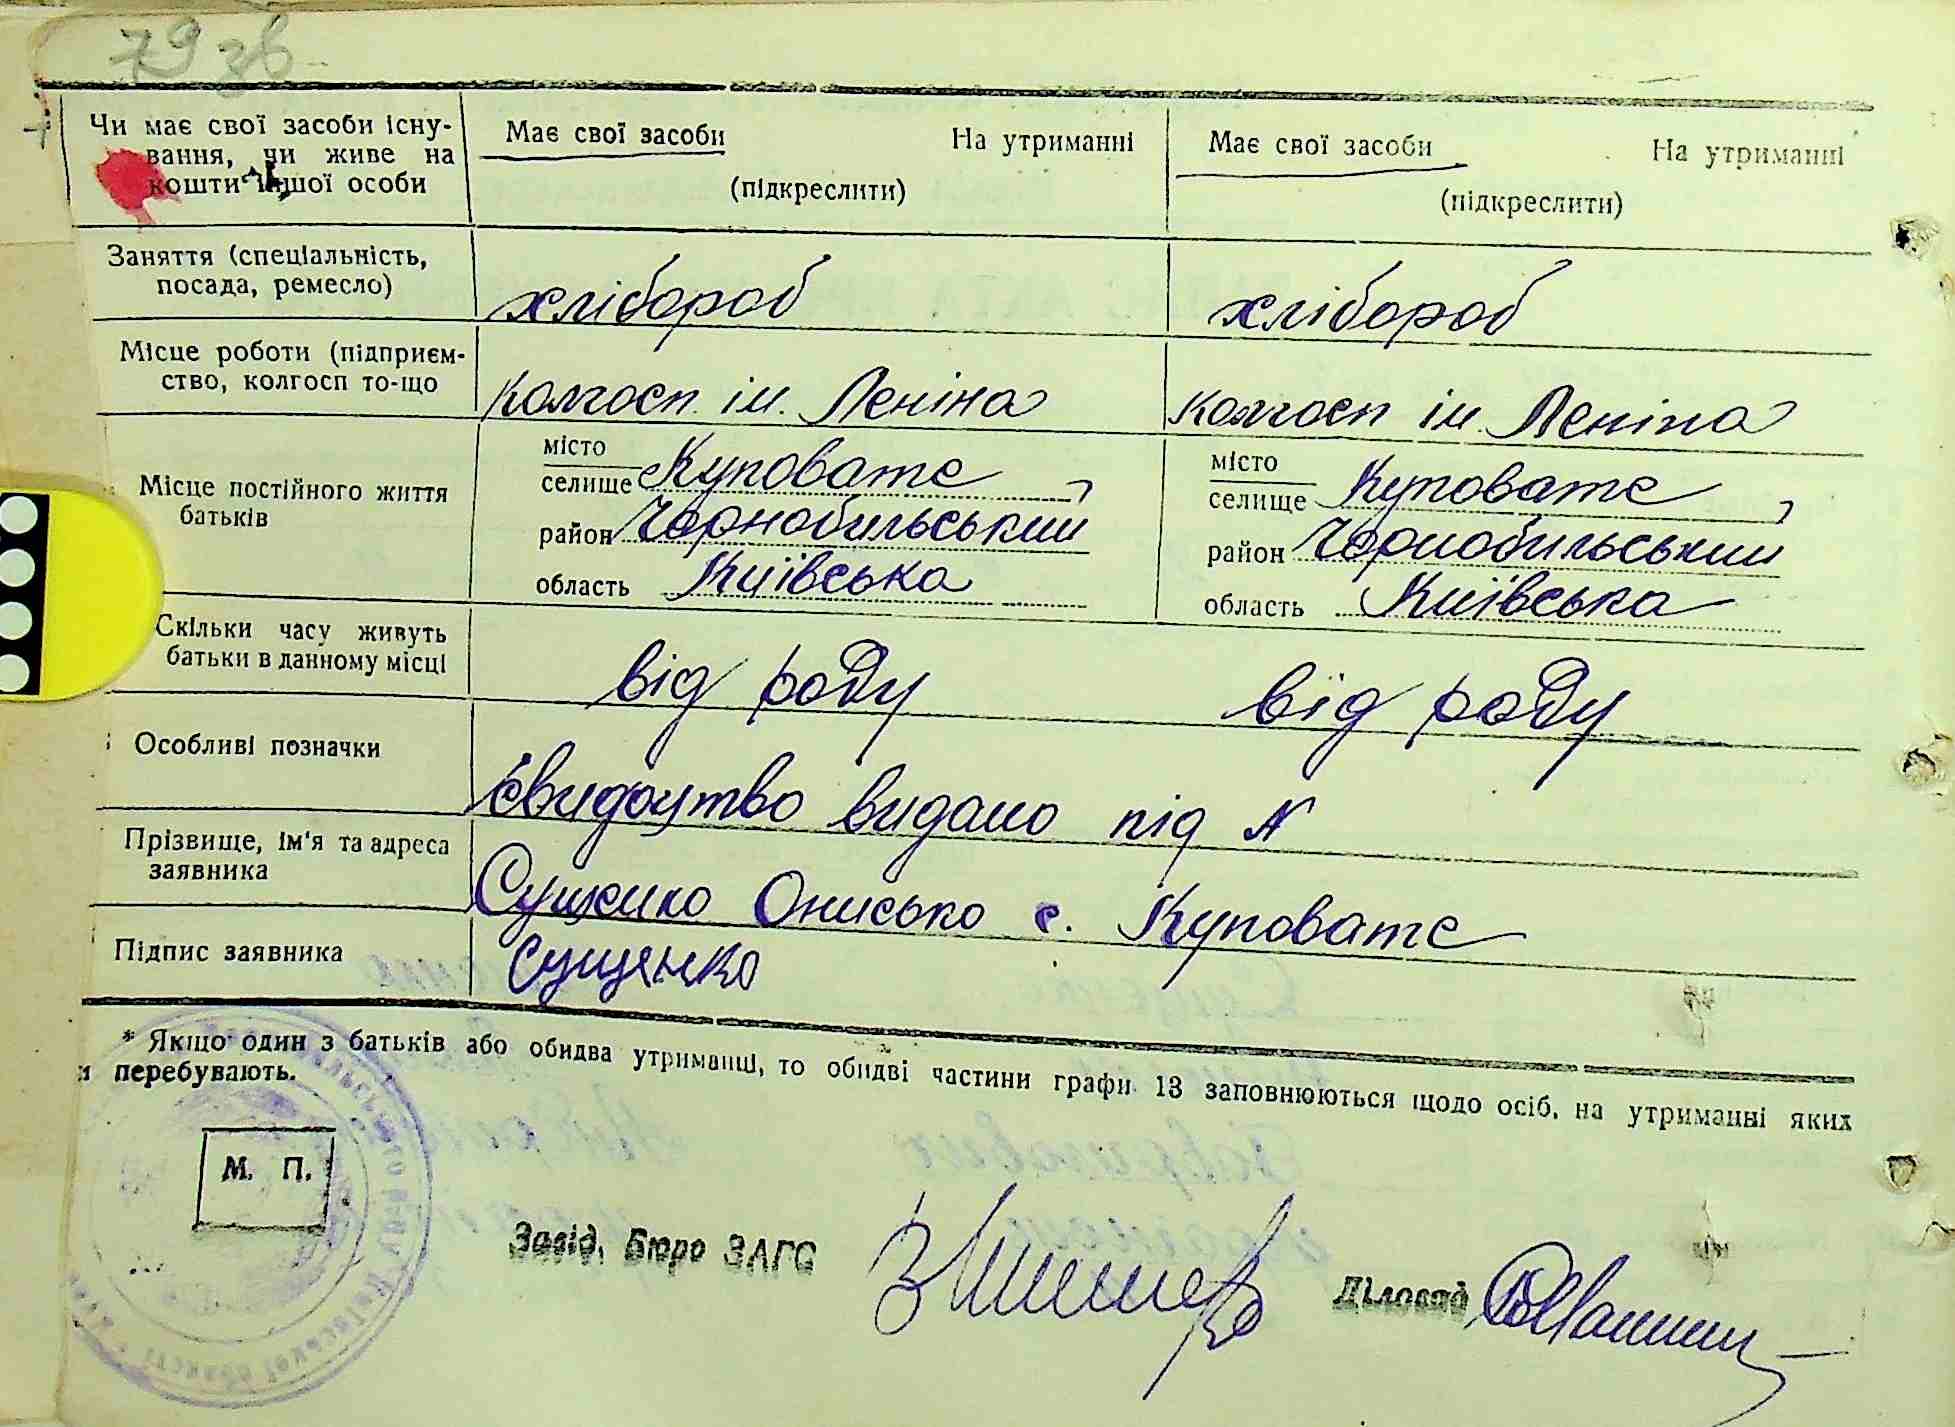 79 зв
Чи має свої засоби існу-
вання, чи живе на
кошти іншої особи
Має свої засоби На утриманні
(підкреслити)
Має свої засоби На утриманні
(підкреслити)
Заняття (спеціальність,
посада, ремесло)
хлібороб
хлібороб
Місце роботи (підприєм-
ство, колгосп то-що
колгосп ім. Леніна
колгосп ім. Леніна
Місце постійного життя
батьків
місто
селище Куповате,
район Чорнобильський
область Київська
місто
селище Куповате,
район Чорнобильський
область Київська
Скільки часу живуть
батьки в данному місці
від роду
від роду
Особливі позначки
Свидоцтво видано під N
Прізвище, ім'я та адреса
заявника
Сущенко Онисько с. Куповате
Підпис заявника
Сущенко
* Якщо один з батьків або обидва утриманці, то обидві частини графи 13 заповнюються щодо осіб, на утриманні яких
и перебувають.
М. П.
Завід. Бюро ЗАГС
Діловод